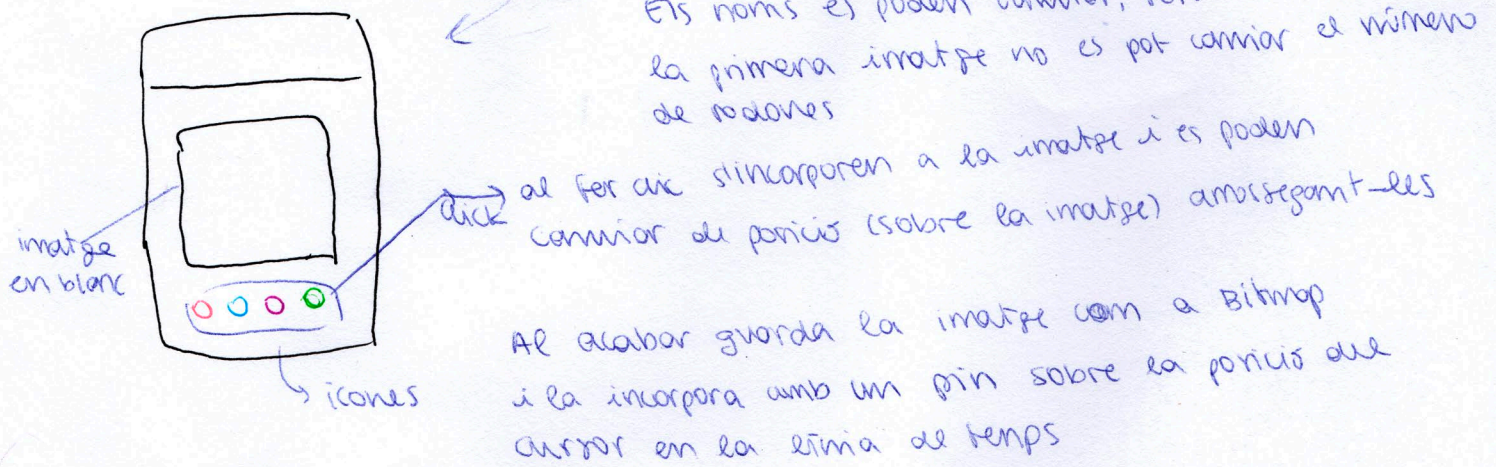 Els noms es poden canviar,
la primera imatge no es pot canviar el número
de rodones
click al fer clic s'incorporen a la imatge i es poden
canviar de posició (sobre la imatge) arrossegant-les
imatge
en blanc
Al acabar guarda la imatge com a Bitmap
icones
i la incorpora amb un pin sobre la posició del
cursor en la línia de temps